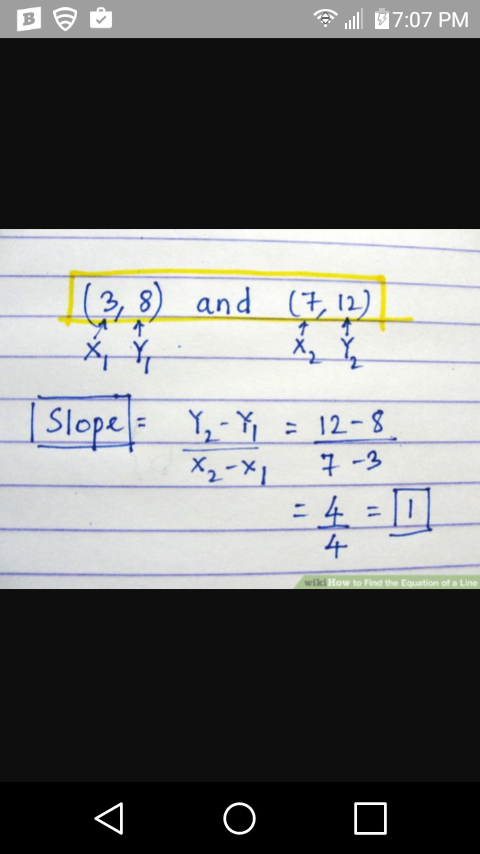 7:07 PM
(3, 8) and (7, 12)
X₁ Y₁ X₂ Y₂
Slope = Y₂-Y₁ / X₂-X₁ = 12-8 / 7-3
= 4/4 = 1
wikiHow to Find the Equation of a Line